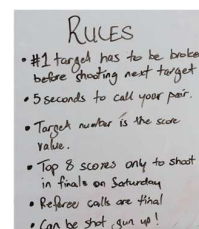 RULES
• #1 target has to be broke
before shooting next target
• 5 seconds to call your pair.
• Target number is the score
value.
• Top 8 scores only to shoot
in finals on Saturday
• Referee calls are final
• Can be shot gun up!